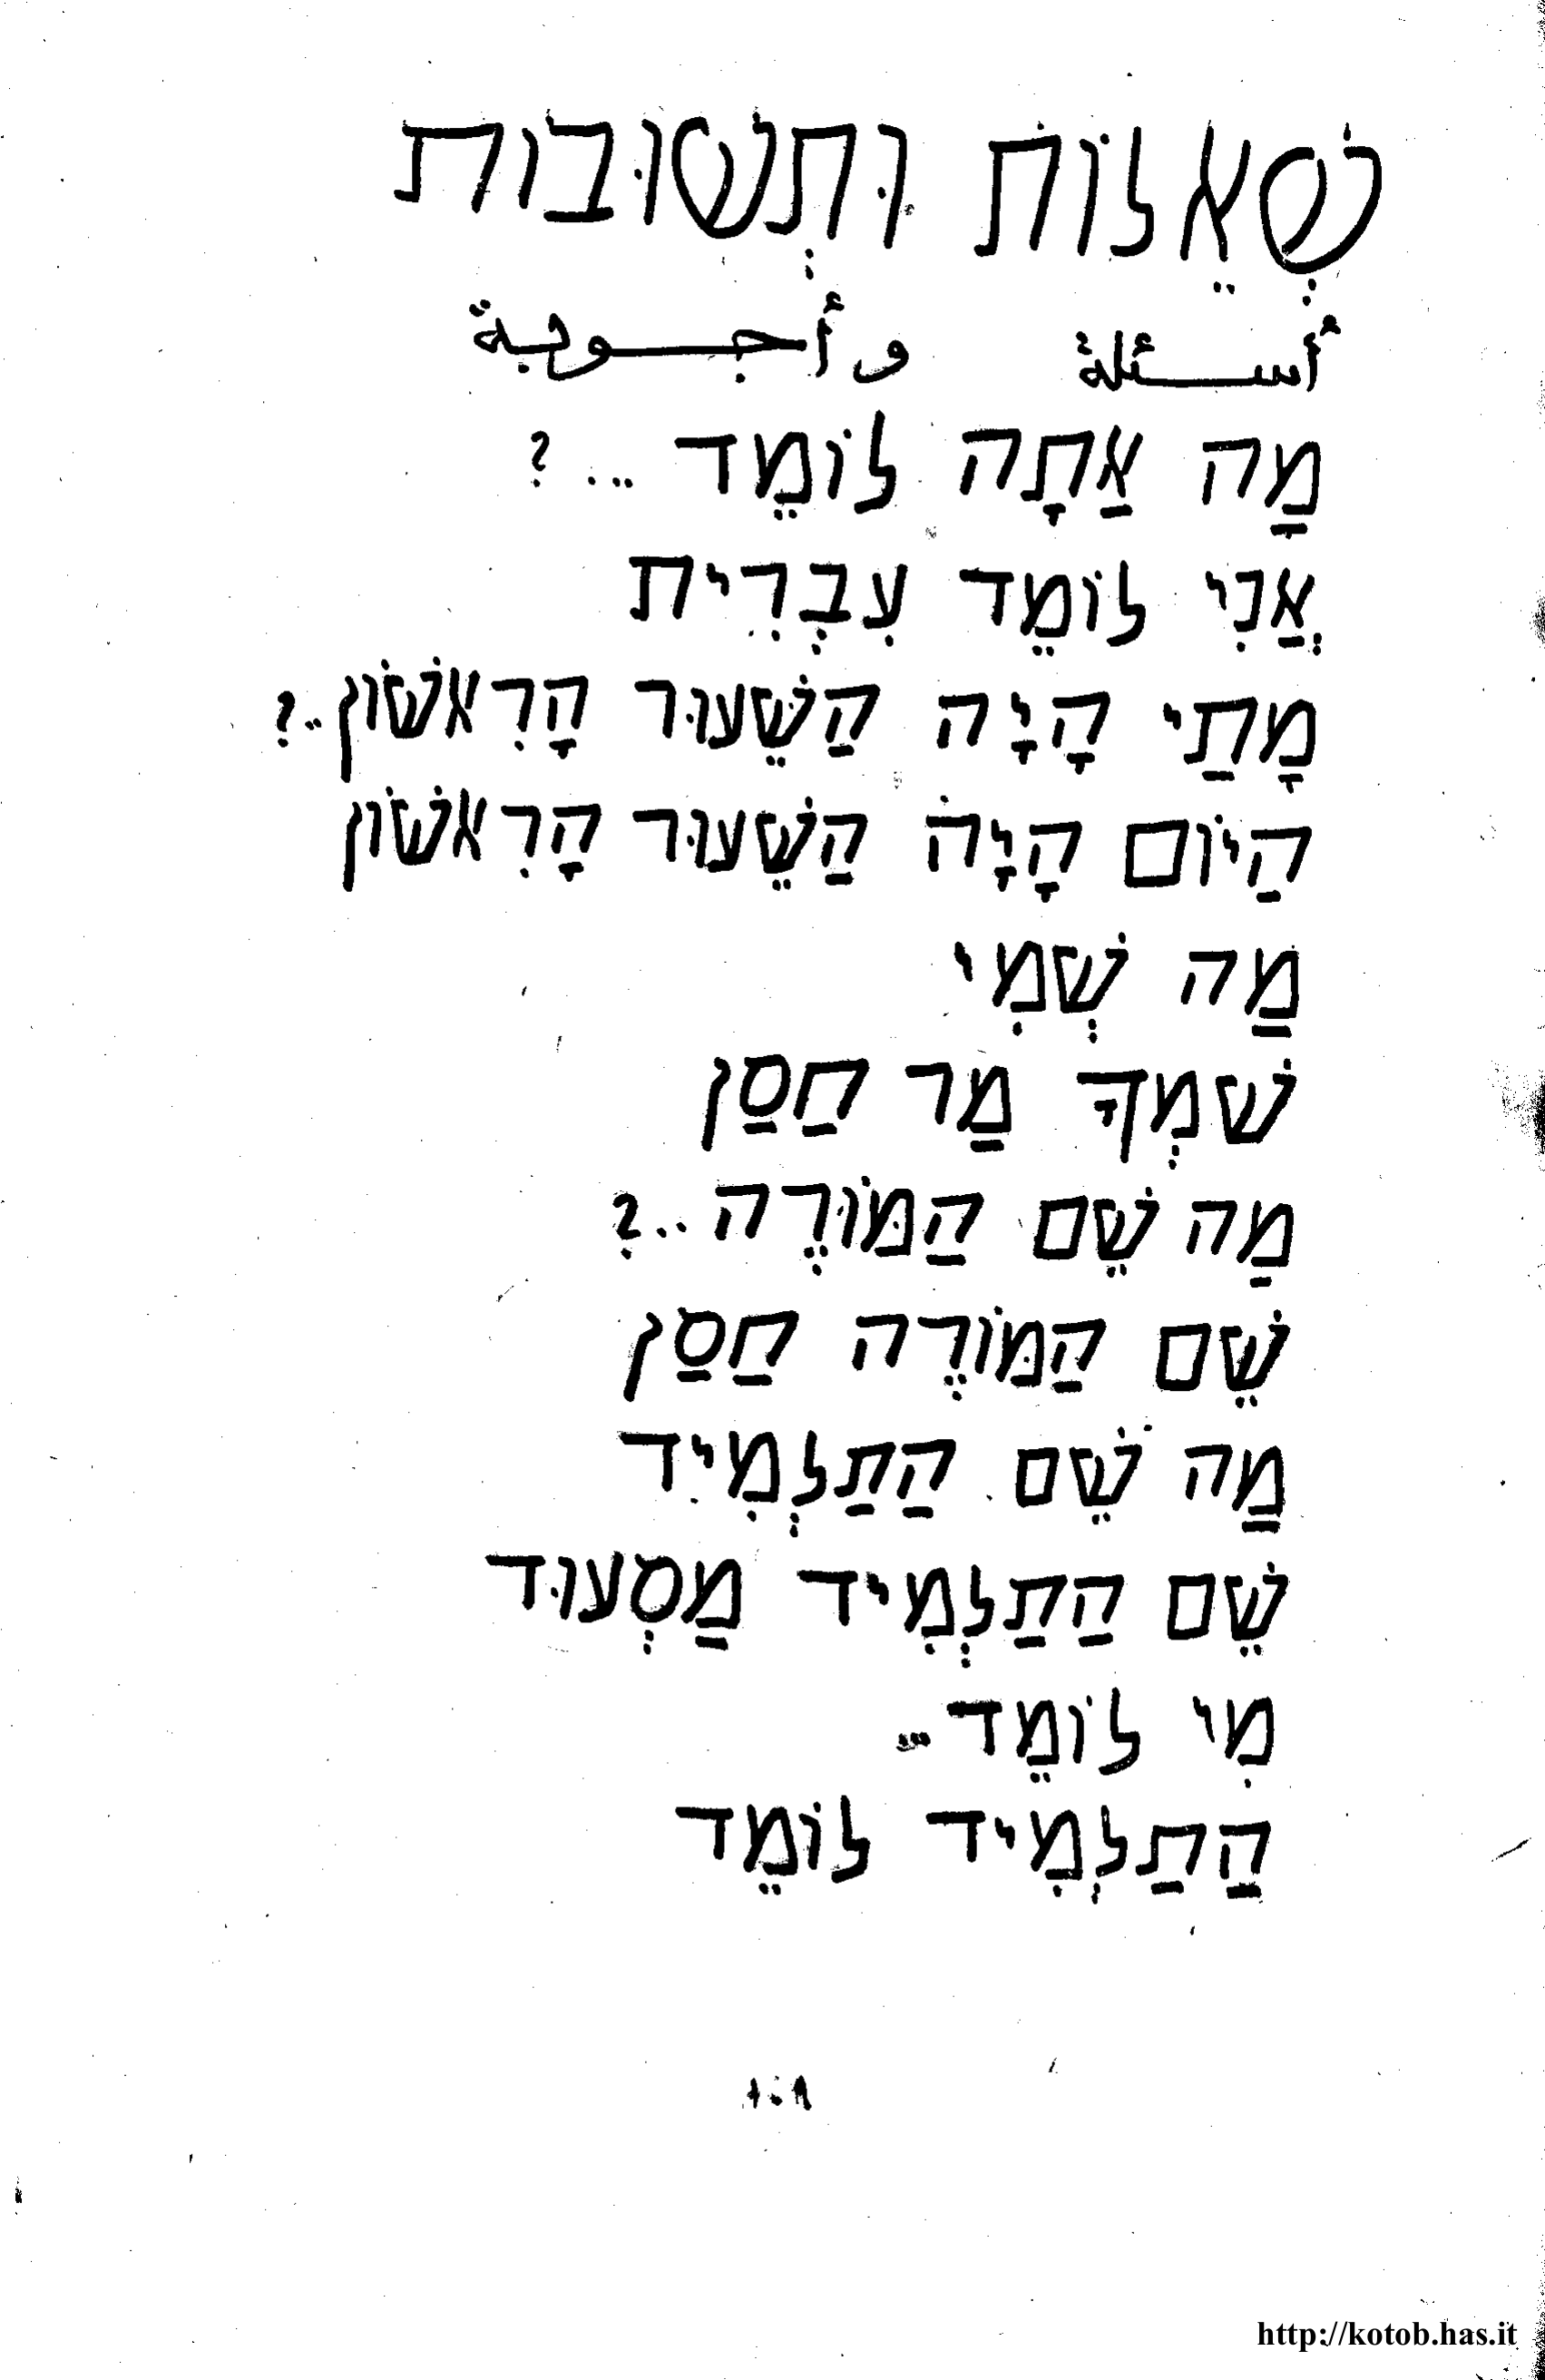 שְׁאֵלוֹת וּתְשׁוּבוֹת
أسئلة وأجوبة
מַה אַתָה לוֹמֵד ...?
אֲנִי לוֹמֵד עִבְרִית
מָתַי הָיָה הַשֵּׁעוּר הָרִאשׁוֹן..?
הַיוֹם הָיָה הַשֵׁעוּר הָרִאשׁוֹן
מַה שְׁמִי
שׁמְךָ מַר חַסַן
מַה שֵׁם הַמּוֹרֶה..?
שֵׁם הַמּוֹרֶה חַסַן
מַה שֵׁם הַתַלְמִיד
שֵׁם הַתַלְמִיד מַסְעוּד
מִי לוֹמֵד...
הַתַלְמִיד לוֹמֵד
http://kotob.has.it